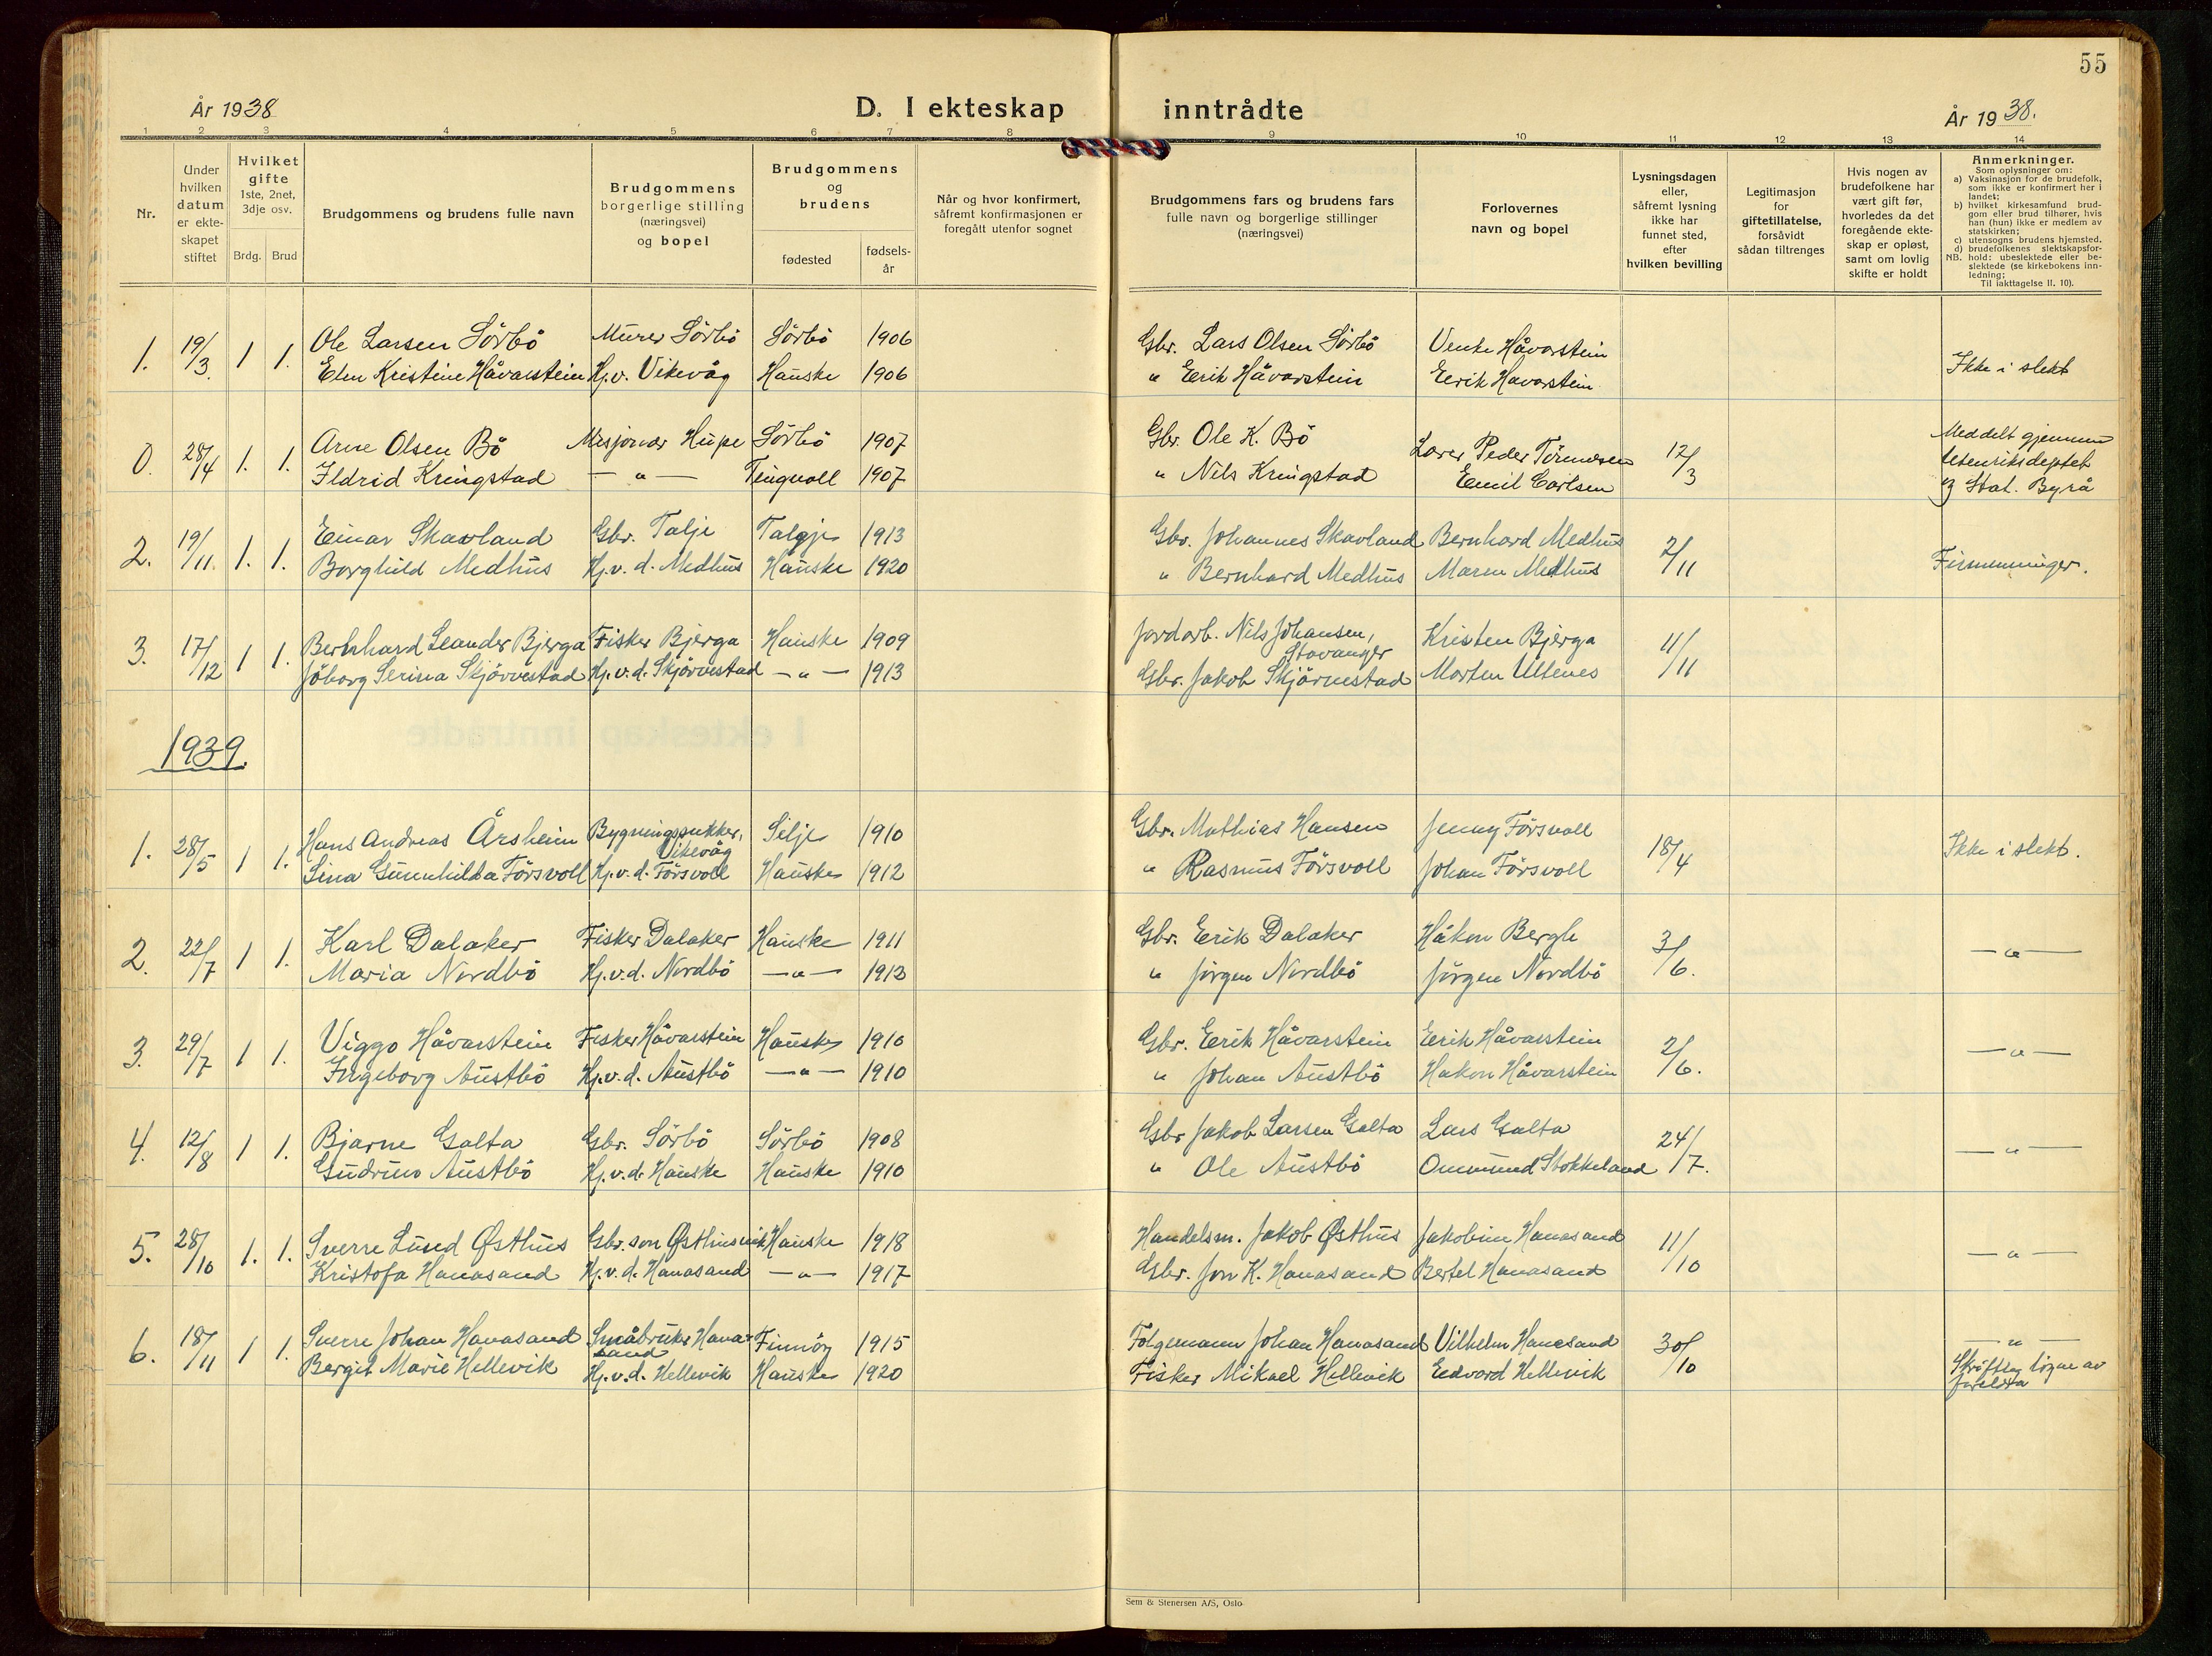 55
År 1938
D. I ekteskap inntrådte
År 1938.
1 2 3 4 5 6 7 8 9 10 11 12 13 14
Nr.
Under hvilken datum er ekteskapet stiftet
Hvilket gifte 1ste, 2net, 3dje osv.
Brdg. Brud
Brudgommens og brudens fulle navn
Brudgommens borgerlige stilling (næringsvei) og bopel
Brudgommens og brudens
fødested
fødsels-år
Når og hvor konfirmert, såfremt konfirmasjonen er foregått utenfor sognet
Brudgommens fars og brudens fars fulle navn og borgerlige stillinger (næringsvei)
Forlovernes navn og bopel
Lysningsdagen eller, såfremt lysning ikke har funnet sted, efter hvilken bevilling
Legitimasjon for giftetillatelse, forsåvidt sådan tiltrenges
Hvis nogen av brudefolkene har vært gift før, hvorledes da det foregående ekteskap er opløst, samt om lovlig skifte er holdt
Anmerkninger.
Som oplysninger om:
a) Vaksinasjon for de brudefolk, som ikke er konfirmert her i landet;
b) hvilket kirkesamfund brudgom eller brud tilhører, hvis han (hun) ikke er medlem av statskirken;
c) utensogns brudens hjemsted.
d) brudefolkenes slektskapsforhold: ubeslektede eller beslektede (se kirkebokens innledning;
NB.
Til iakttagelse II. 10).
1. 19/3. 1 1. Ole Larsen Sörbö Murer Sörbö Sörbö 1906 Gbr. Lars Olsen Sörbö Håvarstein Ikke i slekt
Elen Kristine Håvarstein Hj.v. Vikevåg Hauske 1906 " Eerik Håvarstein Eerik Havarstein
0. 28/4 1. 1. Arne Olsen Bö Misjonær Hupe Sörbö 1907 Gbr. Ole K. Bö Lærer Peder 12/3 Meddelt gjennem
Ildrid Kringstad — " — Tingvoll 1907 " Nils Kringstad Emil Carlsen Utenriksdeptet
og Stat. Byrå
2. 19/11. 1. 1. Einar Skavland Gbr. Talje Talgje 1913 Gbr. Johannes Skavland Bernhard Medhus 2/11
Borghild Medhus Hj.v.d. Medhus Hauske 1920 " Bernhard Medhus Maren Medhus
3. 17/12 1 1. Bernhard Leander Bjerga Fisker Bjerga Hauske 1909 Jordarb. Nils Johansen, Stavanger Kristen Bjerga 11/11
Jöborg Serina Skjörvestad Hj.v.d. Skjörvestad — " — 1913 Gbr. Jakob Skjörvestad Morten Utsnes
1939.
1. 28/5 1 1. Hans Andreas Årsheim Vikevåg Silje 1910 Gbr. Mathias Hansen Jenny Försvoll 18/4 Ikke i slekt.
Lina Gunnhilda Försvoll Hj.v.d. Försvoll Hauske 1912 " Rasmus Försvoll Johan Försvoll
2. 22/7 1 1. Karl Dalaker Fisker Dalaker Hauske 1911 Gbr. Eerik Dalaker Håkon Bergh 3/6. — " —
Maria Nordbö Hj.v.d. Nordbö — " — 1913 " Jörgen Nordbö Jörgen Nordbö
3. 29/7 1 1. Viggo Håvarstein Fisker Håvarstein Hauske 1910 Gbr. Eerik Håvarstein Erik Håvarstein 2/6. — " —
Ingeborg Austbö Hj.v.d. Austbö — " — 1910 " Johan Austbö Hakon Håvarstein
4. 12/8 1 1. Bjarne Galta Gbr. Sörbö Sörbö 1908 Gbr Jakob Larsen Galta Lars Galta 24/7. — " —
Gudrun Austbö Hj.v.d. Hauske Hauske 1910 " Ole Austbö Ommund Stokkeland
5. 28/10 1. 1. Sverre Lund Østhus Gbr. son Østhusvik Hauske 1918 Handelsm. Jakob Østhus Jakobine Hanasand 11/10 — " —
Kristofa Hanasand Hj.v.d. Hanasand — " — 1917 Gbr. Jon K. Hanasand Bertel Hanasand
6. 18/11 1 1. Sverre Johan Hanasand Småbruker Hanasand Finnöy 1915 Johan Hanasand Vilhelm Hanasand 30/10 — " —
Bergit Marie Hellevik Hj.v.d. Hellevik Hauske 1920 Fisker Mikael Hellevik Eedvard Hellevik Skriftleg løgve av foreldra
Sem & Stenersen A/S, Oslo